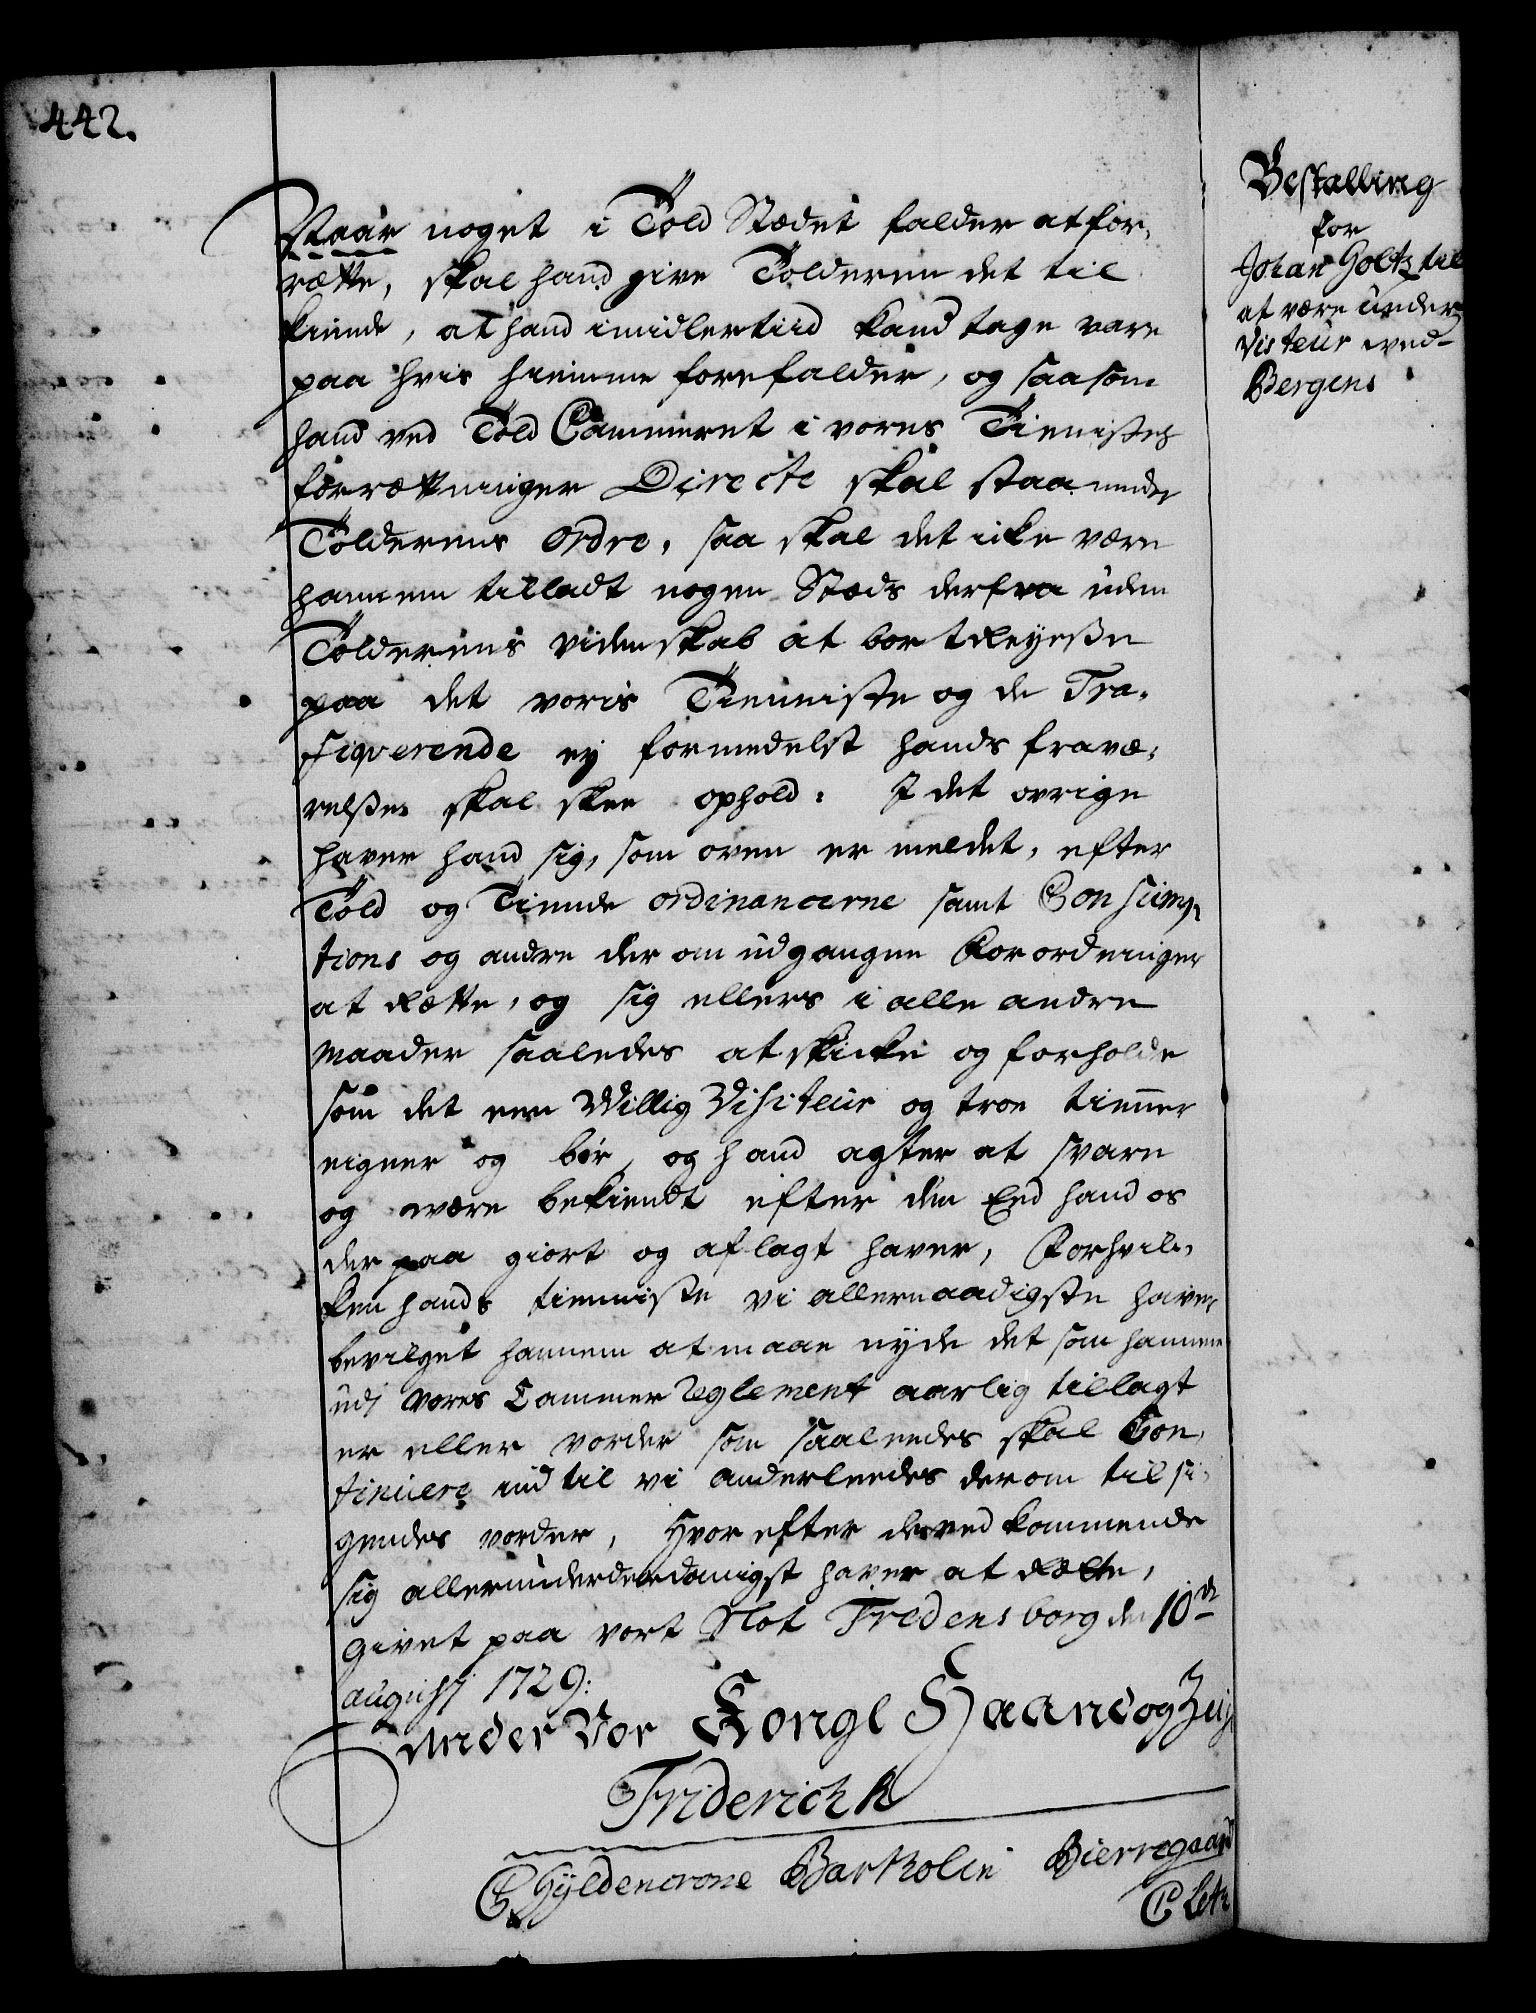 442.
Naar noget i Told Stædet falder at for,
rætte, skal hand give Tolderen det til
kiende, at hand imidlertiid kand tage vare
paa hvis hiemme forefalder, og saasom
hand ved Told Cammeret i vores Tienistes
forrættninger Directe skal staa under
Tolderens Ordre, saa skal det icke være
hannem tilladt nogen Stæds derfra uden
Tolderens videnskab at bortreyße
paa det voris Tienniste og de Tra,
fiqverende ej formedelst hands fravæ,
relße skal skee ophold. I det øvrige
haver hand sig, som oven er meldet, efter
Told og Tiende ordinancerne samt Consump,
tions og andre der om udgangne Forordninger
at rætte, og sig ellers i alle andre
maader saaledes at skicke og forholde
som det een Willig Visiteur og troe tienner
eigner og bør, og hand agter at svare
og være bekiendt efter den Eed hand os
der paa giort og aflagt haver, Forhvil,
ken hands tienniste vi allernaadigste haver
bevilget hannem at maae nyde det som hannem
udj vores Cammer Reglement aarlig tillagt
er eller vorder som saaleedes skal Con,
tinuere ind til vi anderleedes derom til si,
gendes vorder, Hvor efter de ved kommende
sig allerunderdanigst haver at rætte,
givet paa vort Slot Fredensborg den 10de
augusti 1729:
Under Vor Kongl Haand og
Friderich R
C Gyldencrone Bartholin Bierregaard
Bestalling
for
Johan Goltz til
at være under
Visteur wed
Bergens